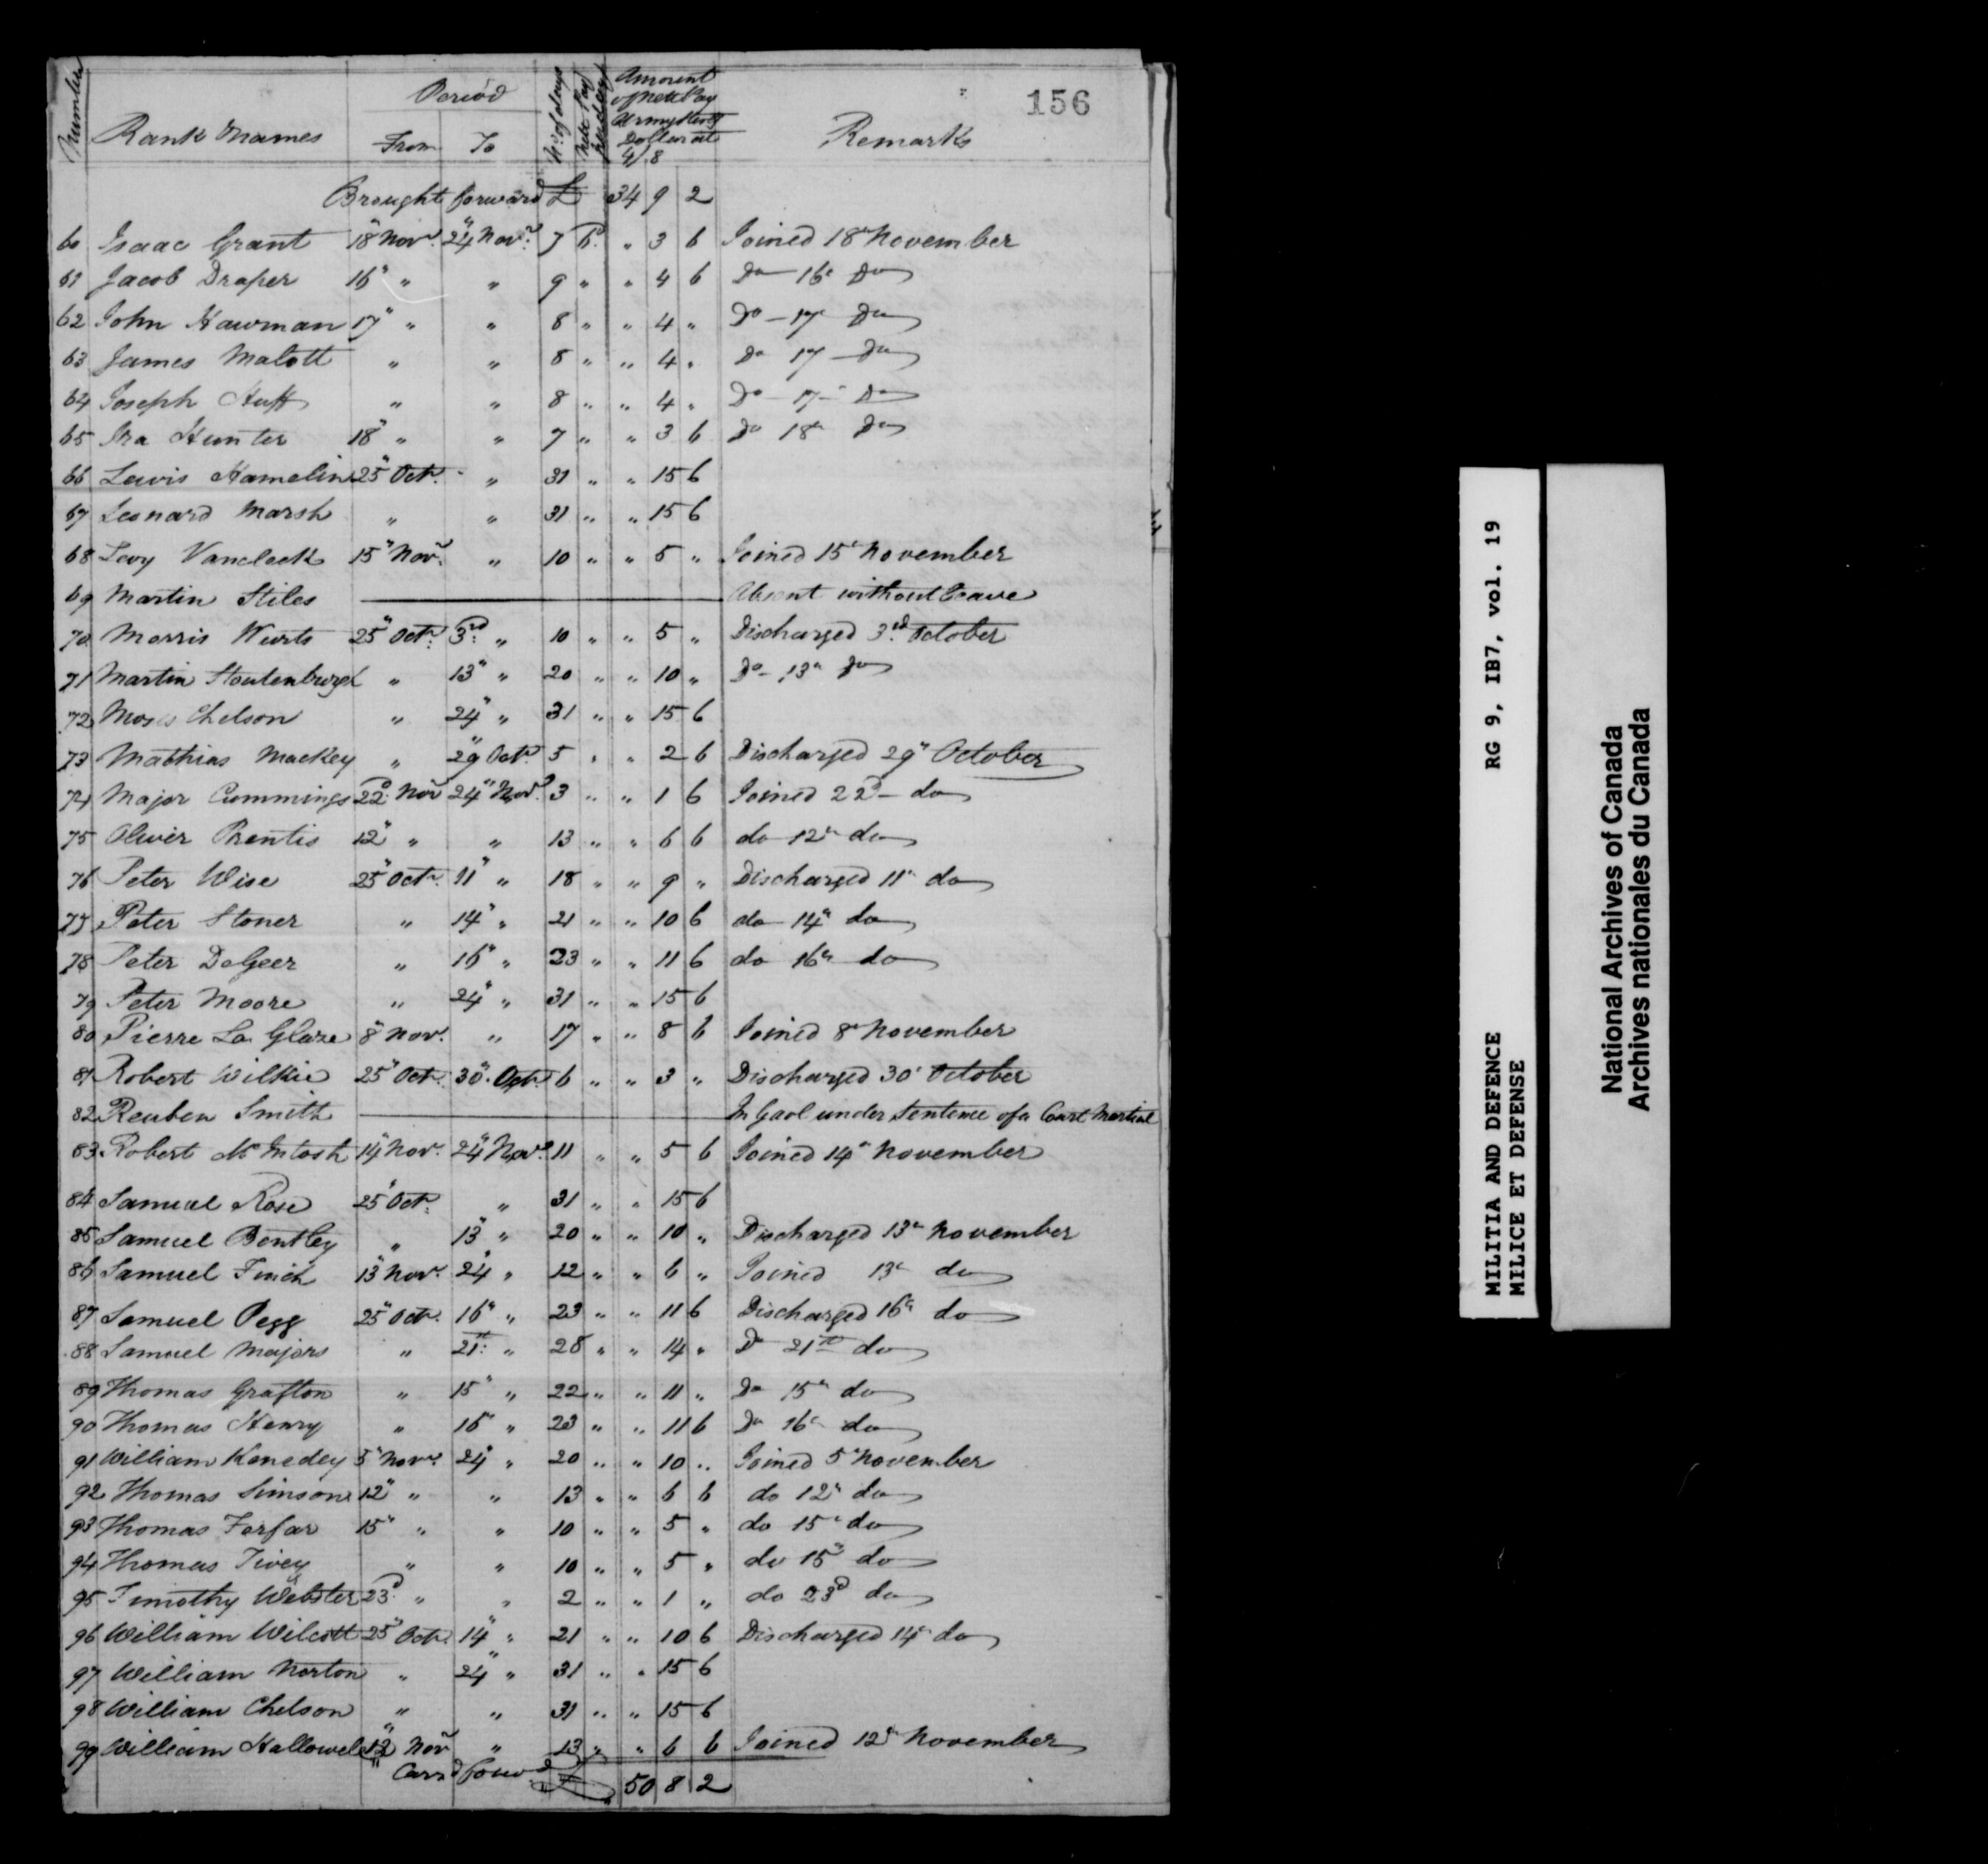 156
Number Rank & Names Period From To No. of days Nett Pay per day Amount of Nett Pay Army Sterg Dollar at 4/8 Remarks
Brought forward £ 34 9 2
60 Isaac Grant 18" Novr. 24" Novr. 7 6d. " 3 6 Joined 18" November
61 Jacob Draper 16" " " 9 " " 4 6 Do 16" Do
62 John Hawman 17" " " 8 " " 4 " Do - 17" Do
63 James Malott " " 8 " " 4 " Do 17 - Do
64 Joseph Huff " " 8 " " 4 " Do - 17 - Do
65 Ira Hunter 18" " " 7 " " 3 6 Do 18" Do
66 Lewis Hamelin 25" Octr. " 31 " " 15 6
67 Leonard Marsh " " 31 " " 15 6
68 Levy Vancleek 15" Novr. " 10 " " 5 " Joined 15" November
69 Martin Stiles Absent without Leave
70 Morris Wurts 25" Octr. 3rd " 10 " " 5 " Discharged 3rd October
71 Martin Stoutenburgh " 13" " 20 " " 10 " Do - 13" Do
72 Moses Chelson " 24" " 31 " " 15 6
73 Mathias Mackey " 29" Octr. 5 " " 2 6 Discharged 29" October
74 Major Cummings 22d. Novr 24" Novr. 3 " " 1 6 Joined 22d - do
75 Oliver Prentis 12" " " 13 " " 6 6 do 12" do
76 Peter Wise 25" Octr. 11" " 18 " " 9 " Discharged 11" do
77 Peter Stoner " 14" " 21 " " 10 6 do 14" do
78 Peter DeGeer " 16" " 23 " " 11 6 do 16" do
79 Peter Moore " 24" " 31 " " 15 6
80 Pierre La Glaze 8" Novr. " 17 " " 8 6 Joined 8" November
81 Robert Wilkie 25" Octr. 30" Octr. 6 " " 3 " Discharged 30" October
82 Reuben Smith In Gaol under Sentence of a Court Martial
83 Robert McIntosh 14" Novr. 24" Novr. 11 " " 5 6 Joined 14" November
84 Samuel Rose 25" Octr. " 31 " " 15 6
85 Samuel Bentley " 13" " 20 " " 10 " Discharged 13" November
86 Samuel Finch 13" Novr. 24" " 12 " " 6 " Joined 13" do
87 Samuel Pegg 25" Octr. 16" " 23 " " 11 6 Discharged 16" do
88 Samuel Majors " 21st " 28 " " 14 " Do 21st do
89 Thomas Grafton " 15" " 22 " " 11 " Do 15" do
90 Thomas Henry " 16" " 23 " " 11 6 Do 16" do
91 William Kenedey 5" Novr. 24" " 20 " " 10 " Joined 5" November
92 Thomas Simson 12" " " 13 " " 6 6 do 12" do
93 Thomas Forfar 15" " " 10 " " 5 " do 15" do
94 Thomas Tivey " " 10 " " 5 " do 15" do
95 Timothy Webster 23d. " " 2 " " 1 " do 23d do
96 William Wilcott 25" Octr. 14" " 21 " " 10 6 Discharged 14" do
97 William Norton " 24" " 31 " " 15 6
98 William Chelson " " 31 " " 15 6
99 William Hallowel 12" Novr " 13 " " 6 6 Joined 12" November
Carrd forwd £ 50 8 2
MILITIA AND DEFENCE RG 9, IB7, vol. 19
MILICE ET DEFENSE
National Archives of Canada
Archives nationales du Canada